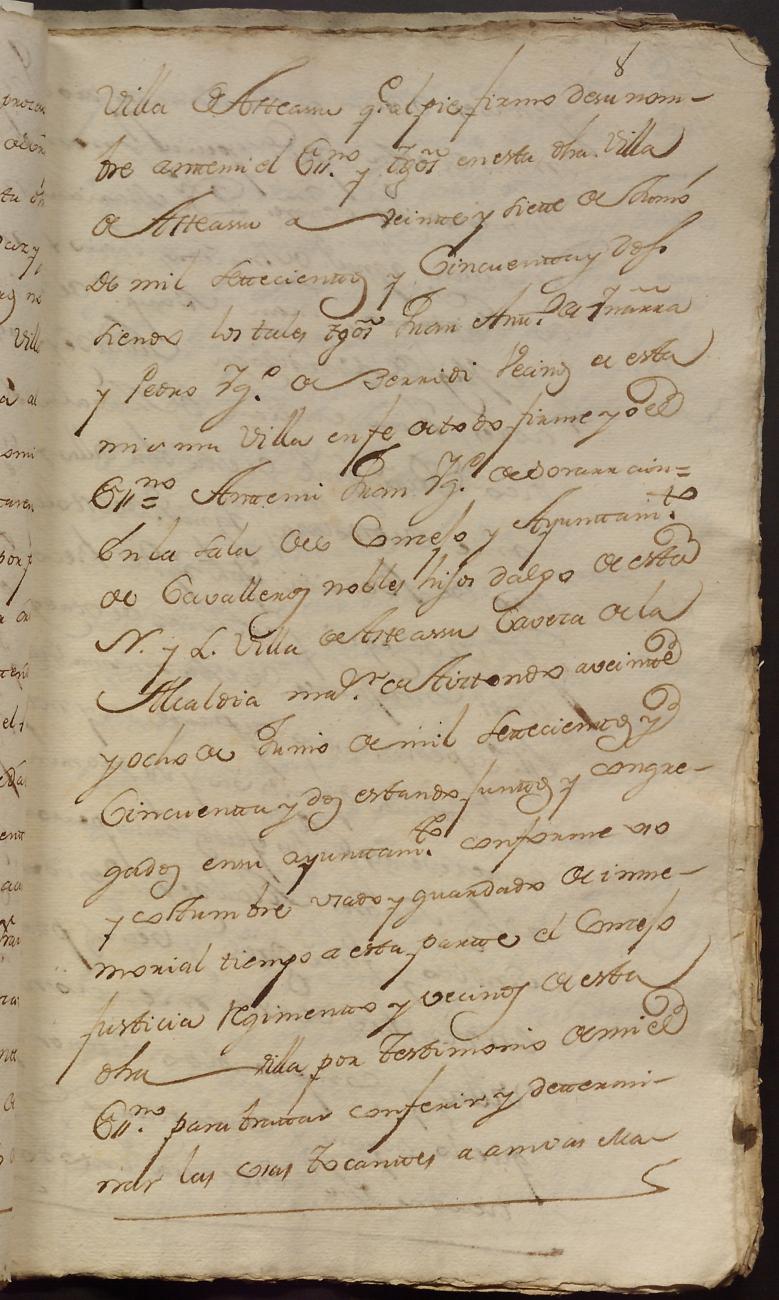 8
Villa de Asteassu q.e al pie firmo de su nom-
bre ante mi el Ess.no y tgõs en esta dha. Villa
de Asteassu a veinte y siete de Junio
de mil settecientos y Cincuenta y dos
siendo los tales tgõs Juan Anu.o de Ynãrra
y Pedro Yg.o de Berridi Vecinos de esta
misma Villa en fe de todo firme yo el
Ess.no = Ante mi Juan Yg.o de
En la Sala de Concejo y Ayuntam.to
de Cavalleros nobles hijos dalgo de esta
N. y L. Villa de Asteassu Cavera de la
Alcaldia ma.r de Aiztondo a veinte
y ocho de Junio de mil settecientos y
Cincuenta y dos estando juntos y congre-
gados en su ayuntam.to conforme uso
y costumbre usado y guardado de inme-
morial tiempo a esta parte el Concejo
Justicia Regimiento y vecinos de esta
dha villa por testimonio de mi el
Ess.no para trattar conferir y determi-
nar las cosas tocantes a ambas Ma-